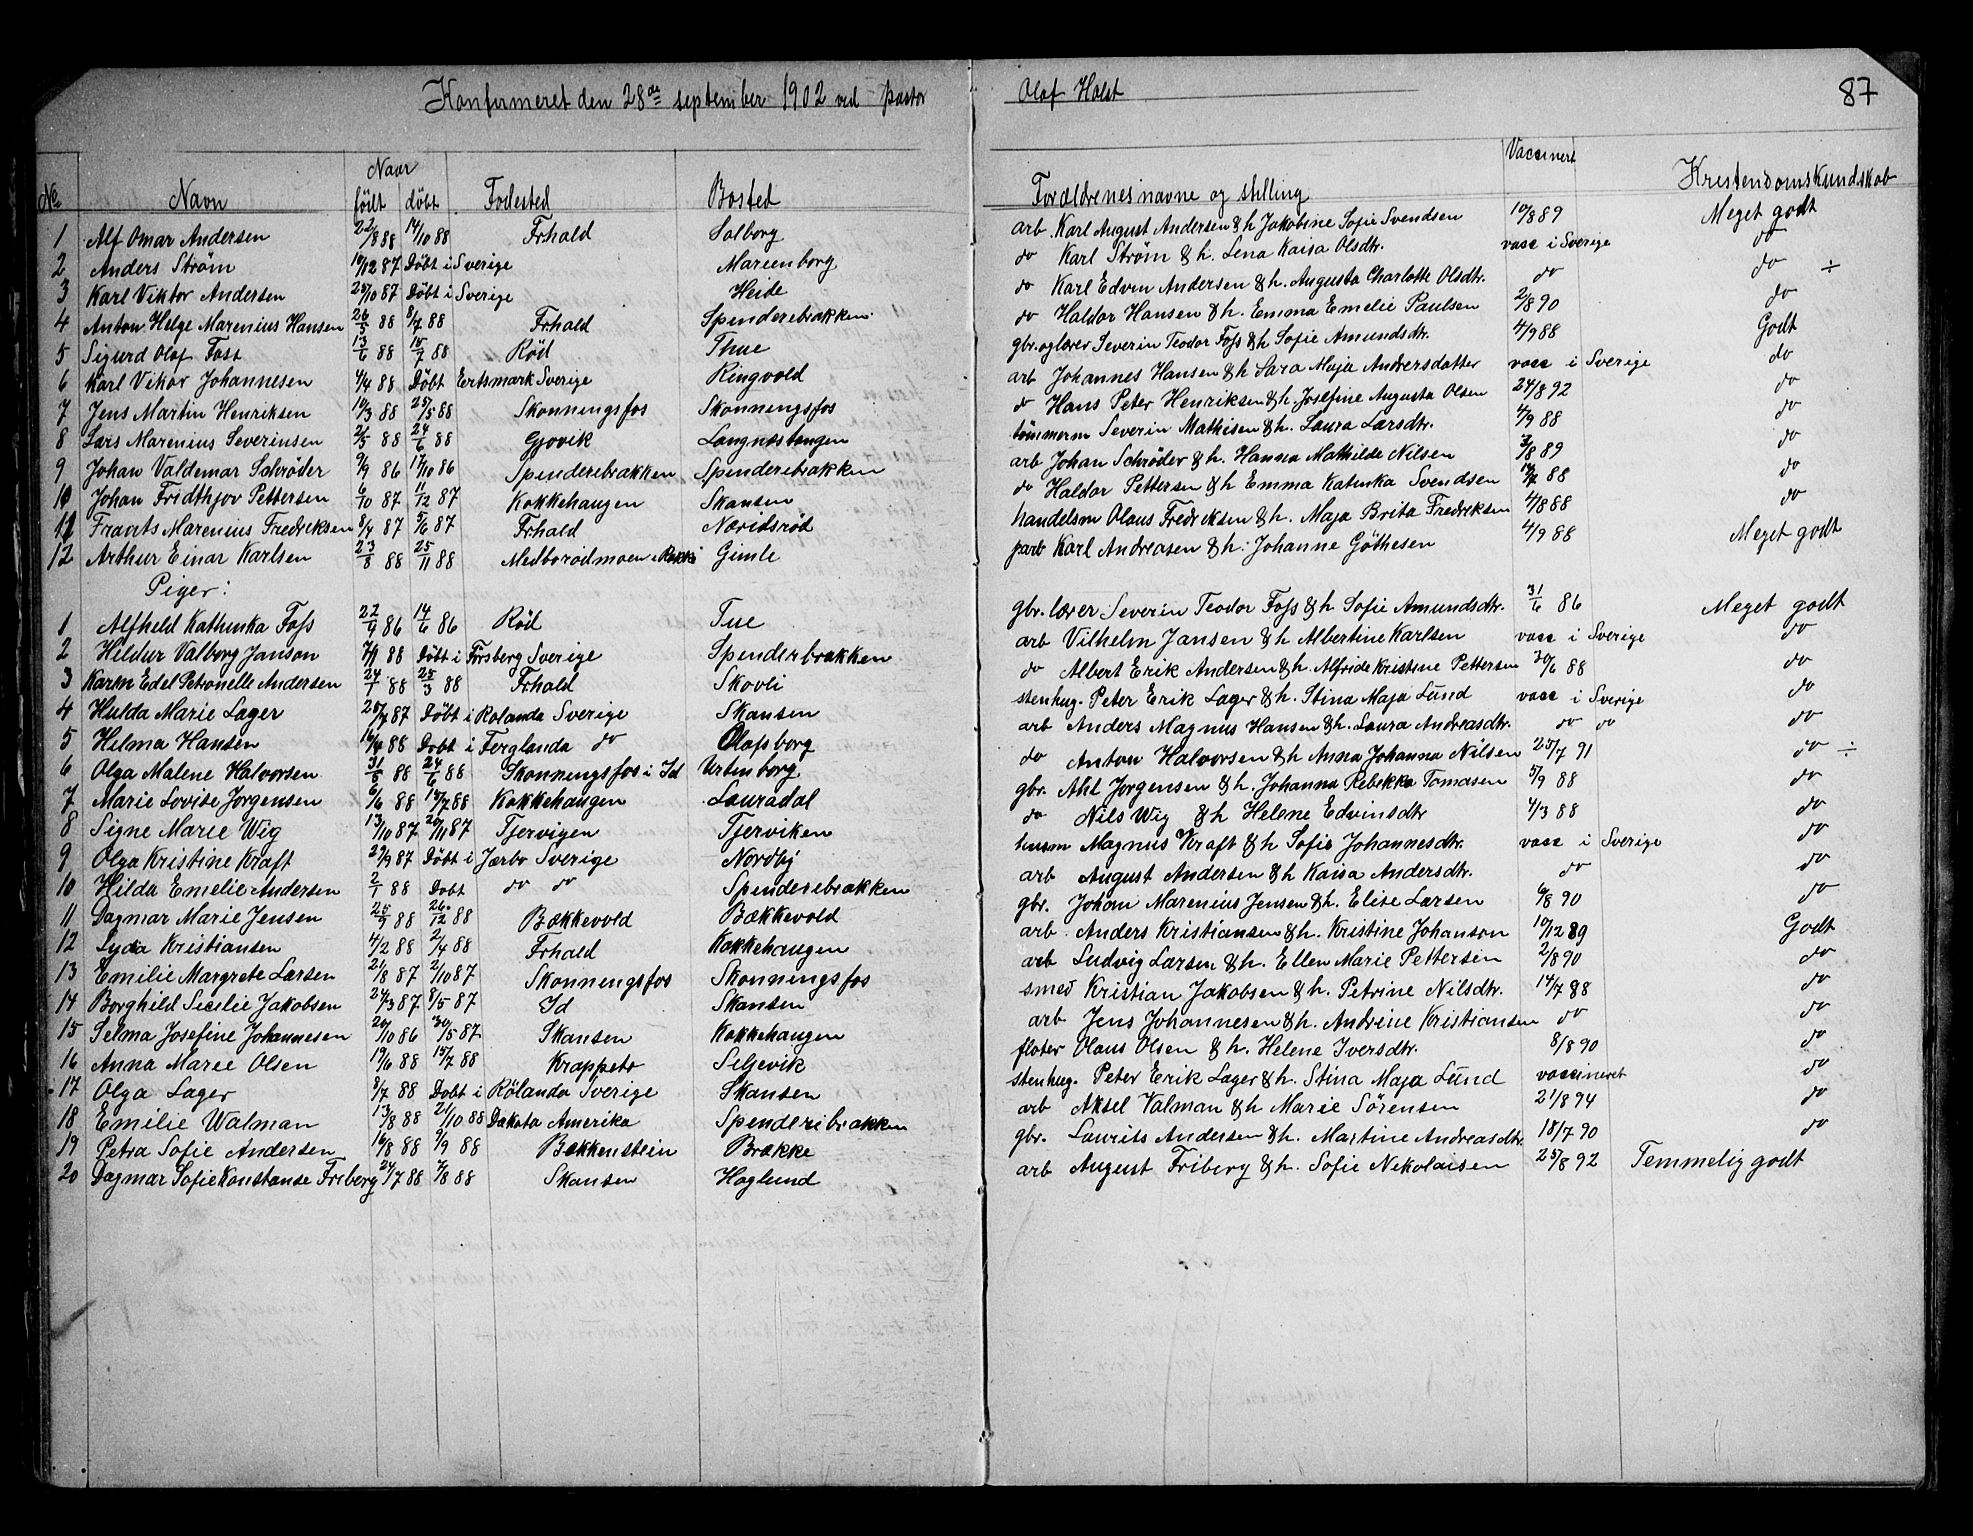 Konfirmeret den 28de september 1902 ved pastor Olaf Holst 87
No. Navn Naar født døbt Fodested Bosted Forældrenes navne og stilling Vaccinert Kristendomskundskab
1 Alf Omar Andersen 22/8 88 14/10 88 Frhald Solborg arb. Karl August Andersen & h Jakobine Sofie Svendsen 10/8 89 Meget godt
2 Anders Strøm 10/12 87 Døbt i Sverige Marienborg do Karl Strøm & h. Lena Kaisa Olsdtr. vacc i Sverige do
3 Karl Viktor Andersen 25/10 87 Døbt i Sverige Heide do Karl Edvin Andersen & h. Augusta Charlotte Olsdtr. do do ÷
4 Anton Helge Marenius Hansen 26/5 88 8/7 88 Frhald Spenderebrakken do Haldor Hansen & h. Emma Emelie Paulsen 2/8 90 do
5 Sigurd Olaf Foss 13/6 88 15/7 88 Rød Thue gbr. og lærer Severin Teodor Foss & h Sofie Amundsdtr. 4/9 88 Godt
6 Karl Viktor Johannesen 4/4 88 Døbt Ertsmark Sverige Ringvold arb Johannes Hansen & h Sara Maja Andersdatter vacc i Sverige do
7 Jens Martin Henriksen 10/3 88 25/5 88 Skonningsfos Skonningsfos do Hans Peter Henriksen & h. Josefine Augusta Olsen 24/8 92 do
8 Lars Marenius Severinsen 21/5 88 24/6 88 Gjovik Langnæstangen tømmerm Severin Mathisen & h. Laura Larsdtr. 4/9 88 do
9 Johan Valdemar Schrøder 9/9 86 17/10 86 Spenderebrakken Spenderebrakken arb Johan Schrøder & h. Hanna Mathilde Nilsen 3/8 89 do
10 Johan Fridthjov Pettersen 6/10 87 11/12 87 Kokkehaugen Skansen do Haldor Pettersen & h Emma Katinka Svendsen 88 do
11 Frants Marenius Fredriksen 8/4 87 5/6 87 Frhald Næridsrød handelsm Olaus Fredriksen & h. Maja Brita Fredriksen 4/8 88 do
12 Arthur Einar Karlsen 23/8 88 25/11 88 Medborødmoen Gimle parb Karl Andreasen & h. Johanne Göthesen 4/9 88 Meget godt
Piger:
1 Alfhild Kathinka Foss 22/4 86 14/6 86 Rød Tue gbr. lærer Severin Teodor Foss & h Sofie Amundsdtr. 31/6 86 Meget godt
2 Hildur Valborg Janson 7/1 88 Døbt i Forsberg Sverige Spenderbrakken arb Vilhelm Jansen & h Albertine Karlsen vacc i Sverige do
3 Karen Edel Petronelle Andersen 24/1 88 25/3 88 Frhald Skovli do Albert Erik Andersen & h. Alfride Kristine Pettersen 30/6 88 do
4 Hulda Marie Lager 25/7 87 Døbt i Rolanda Sverige Skansen stenhug. Peter Erik Lager & h. Stina Maja Lund vacc i Sverige do
5 Hilma Hansen 16/4 88 Dobt i Ferglanda do Olafsborg arb Anders Magnus Hansen & h. Laura Andreasdtr. do do do
6 Olga Malene Halvorsen 31/5 88 24/6 88 Skonningsfos i Id Urtenborg do Anton Halvorsen & h Anna Johanna Nilsen 25/7 91 do ÷
7 Marie Lovise Jorgensen 6/6 88 15/7 88 Kokkehaugen Lauradal gbr. Ahl Jorgensen & h. Johanna Rebekka Tomasen 5/9 88 do
8 Signe Marie Wig 13/10 87 20/11 87 Tjervigen Tjerviken do Nils Wig & h Helene Edvinsdtr 4/3 88 do
9 Olga Kristine Kraft 29/9 87 Døbt i Jærbo Sverige Nordby husm Magnus Kraft & h Sofie Johannesdtr. vacc i Sverige do
10 Hilda Emelie Andersen 2/1 88 Dobt do do Spenderebrakken arb August Andersen & h Kaisa Andersdtr. do do
11 Dagmar Marie Jensen 25/9 88 26/12 88 Bækkevold Bækkevold gbr. Johan Marenius Jensen & h. Elise Larsen 6/8 90 do
12 Lyda Kristiansen 4/2 88 2/4 88 Frhald Kokkehaugen arb Anders Kristiansen & h. Kristine Johanson 10/12 89 Godt
13 Emilie Margrete Larsen 21/8 87 2/10 87 Skonningsfos Skonningsfos arb Ludvig Larsen & h. Ellen Marie Pettersen 2/8 90 do
14 Borghild Sicilie Jakobsen 24/3 87 8/5 87 Id Skansen smed Kristian Jakobsen & h. Petrine Nilsdtr. 14/7 88 do
15 Selma Josefine Johannesen 20/10 86 30/5 87 Skansen Kokkehaugen arb Jens Johannesen & h. Andrine Kristiansen do do
16 Anna Marie Olsen 19/6 88 15/7 88 Krappeto Seljevik fløter Olaus Olsen & h. Helene Iversdtr. 8/8 90 do
17 Olga Lager 8/7 88 Dobt i Rølanda Sverige Skansen stenhug. Peter Erik Lager & h. Stina Maja Lund vaccineret do
18 Emilie Walman 13/8 88 21/10 88 Dakota Amerika Spenderibrakken arb Aksel Valman & h Marie Sörensen 21/8 94 do
19 Petra Sofie Andersen 16/8 88 9/9 88 Bækkenstein Brække gbr. Laurits Andersen & h. Martine Andreasdtr. 18/7 90 do
20 Dagmar Sofie Konstanse Friberg 24/7 88 7/8 88 Skansen Hoglund arb August Friberg & h. Sofie Nekolaisen 25/8 92 Temmelig godt